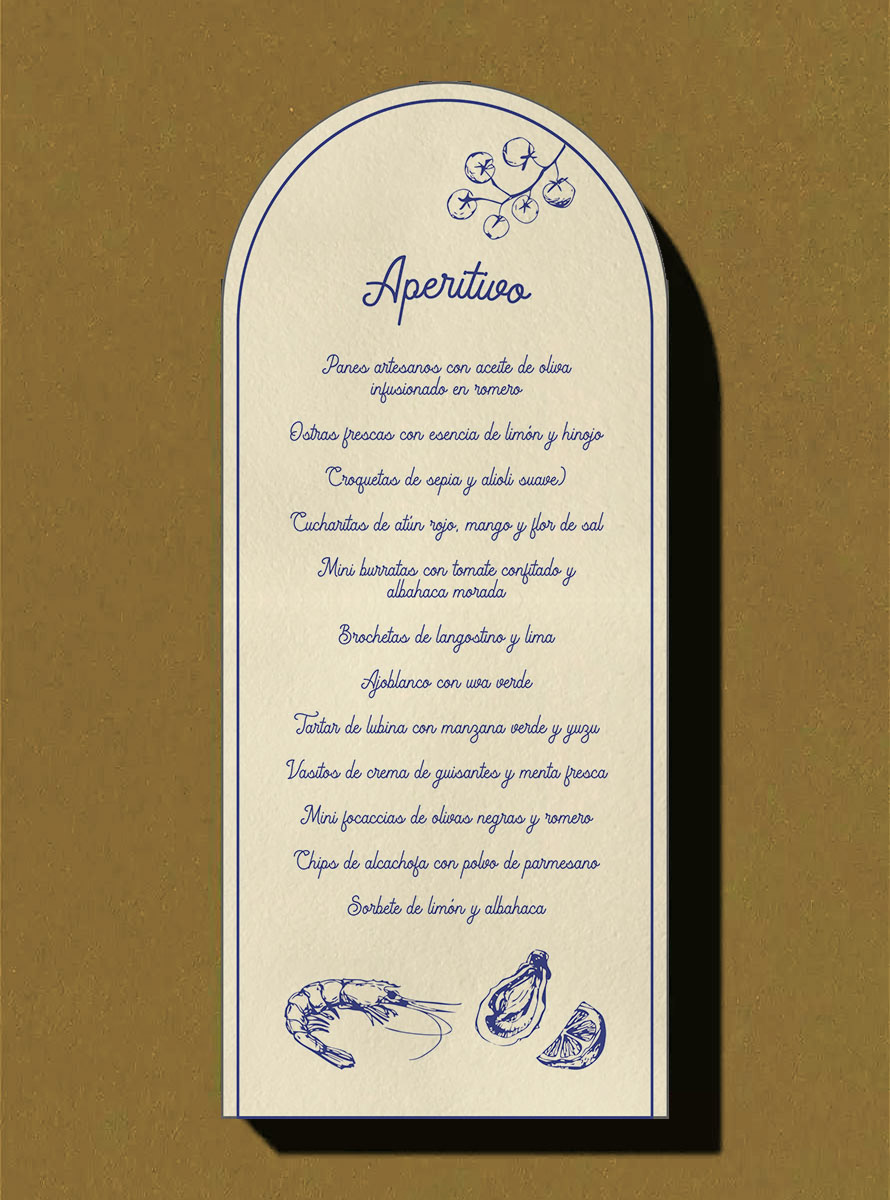 Aperitivo
Panes artesanos con aceite de oliva
infusionado en romero
Ostras frescas con esencia de limón y hinojo
Croquetas de sepia y alioli suave)
Cucharitas de atún rojo, mango y flor de sal
Mini burratas con tomate confitado y
albahaca morada
Brochetas de langostino y lima
Ajoblanco con uva verde
Tartar de lubina con manzana verde y yuzu
Vasitos de crema de guisantes y menta fresca
Mini focaccias de olivas negras y romero
Chips de alcachofa con polvo de parmesano
Sorbete de limón y albahaca